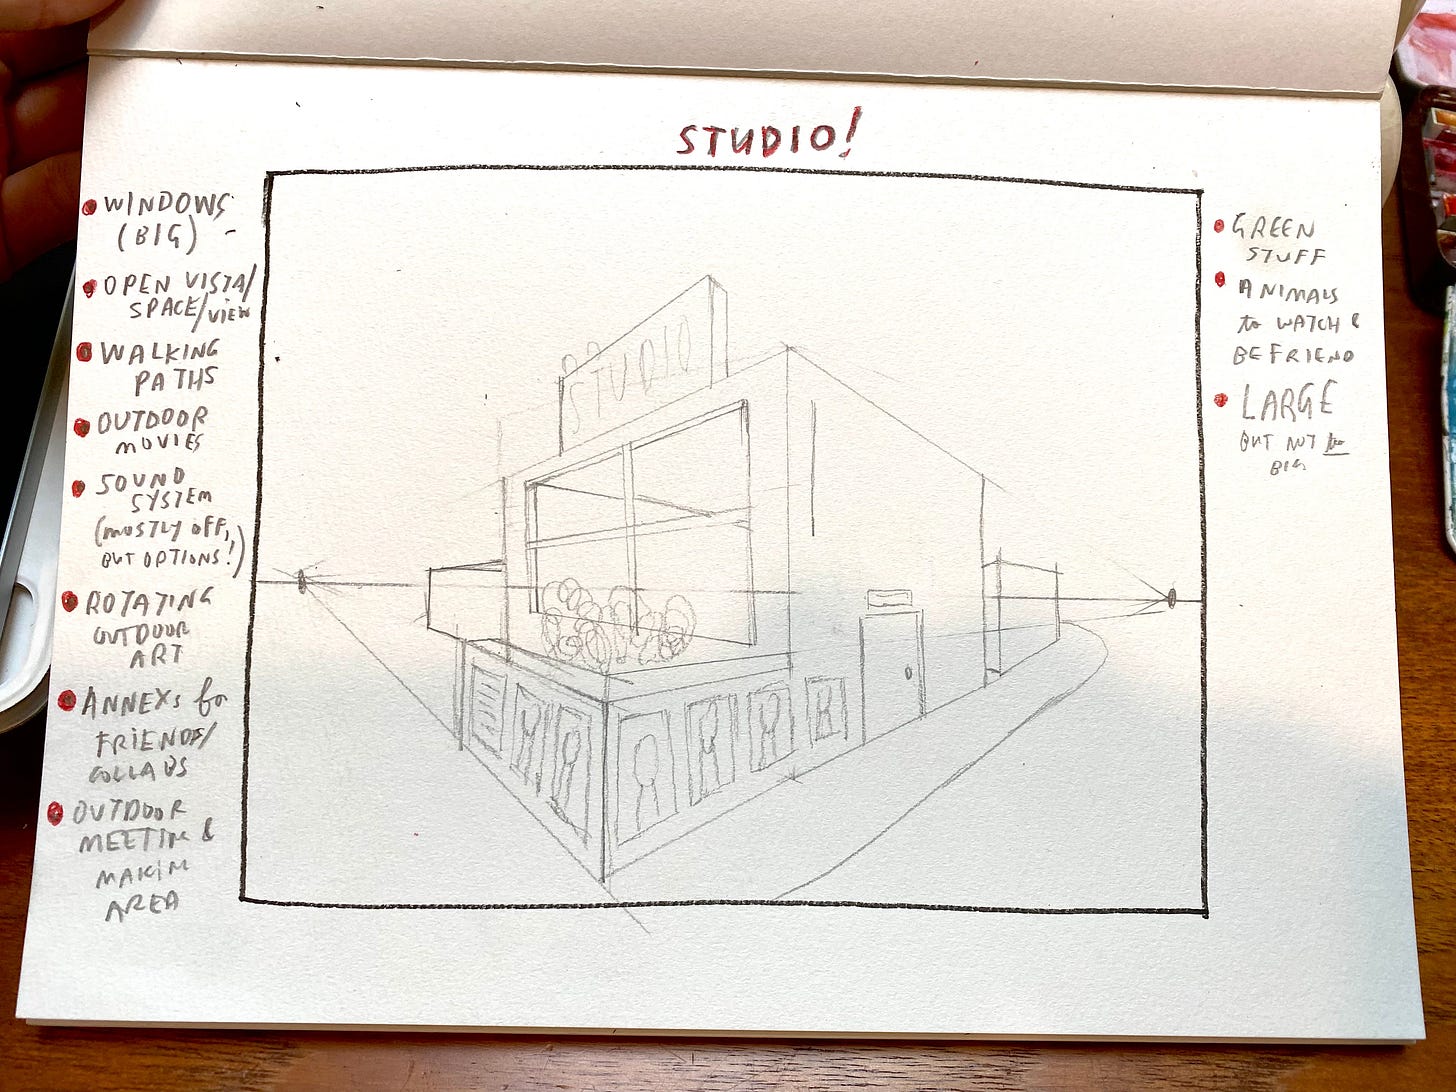 STUDIO!
• WINDOWS
(BIG)
• OPEN VISTA/
SPACE/VIEW
• WALKING
PATHS
• OUTDOOR
MOVIES
• SOUND
SYSTEM
(MOSTLY OFF,
BUT OPTIONS!)
• ROTATING
OUTDOOR
ART
• ANNEXS for
FRIENDS/
COLLABS
• OUTDOOR
MEETIN &
MAKIN
AREA
STUDIO
• GREEN
STUFF
• ANIMALS
to WATCH &
BEFRIEND
• LARGE
BUT NOT
BIG